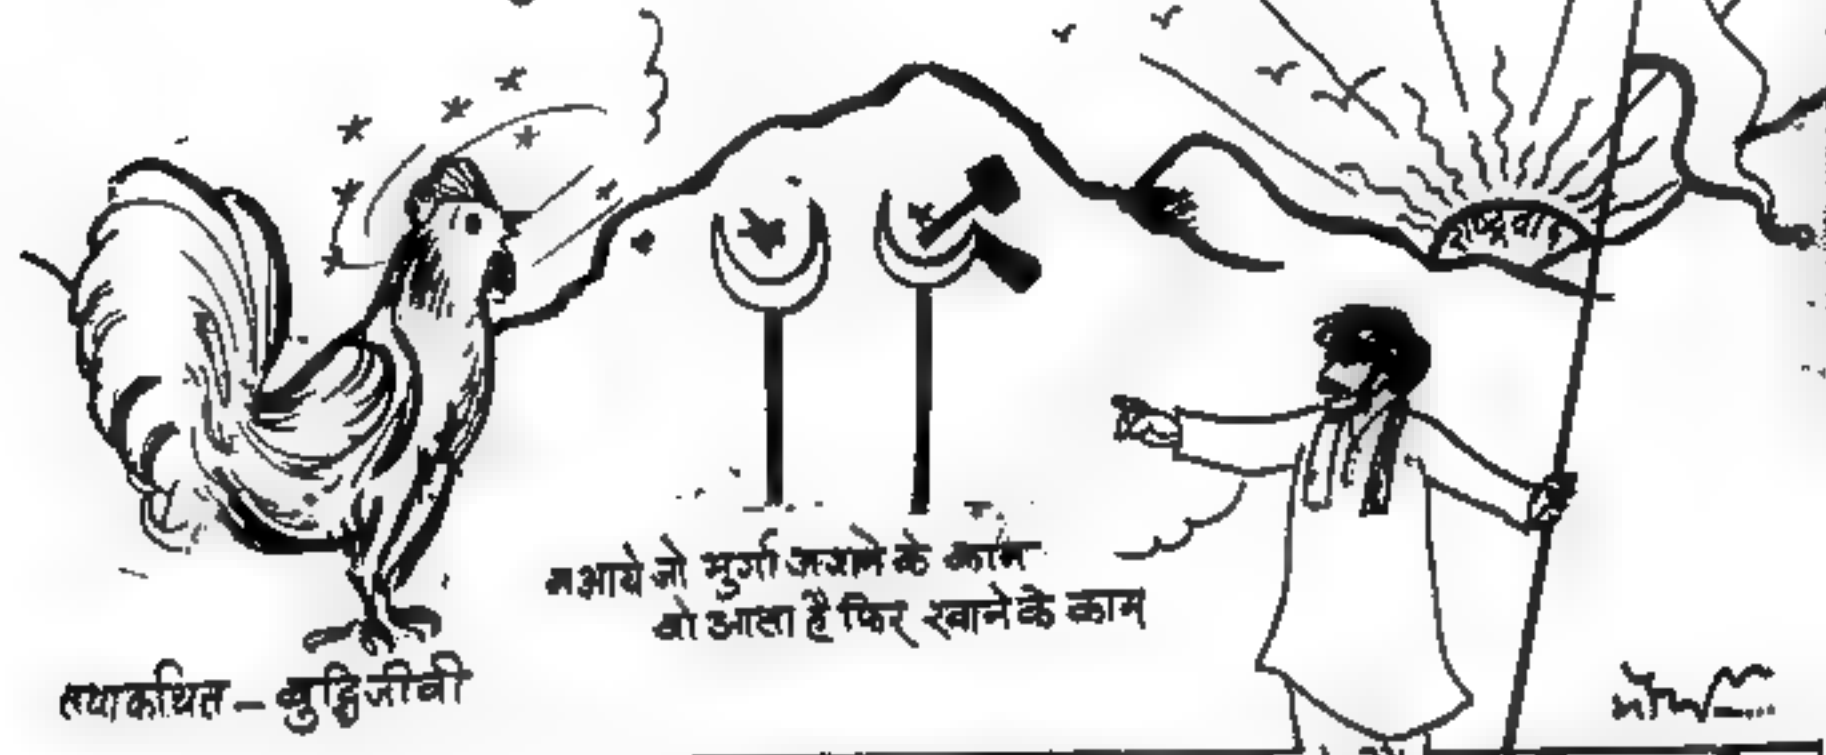 राष्ट्रवाद
न आये जो मुर्गा जगाने के काम
वो आता है फिर खाने के काम
तथाकथित - बुद्धिजीवी